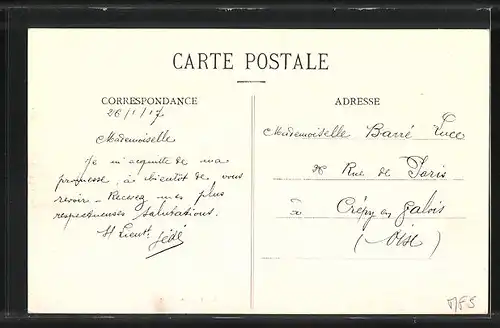 CARTE POSTALE
CORRESPONDANCE
ADRESSE
26/1/17
Mademoiselle
Je m'acquitte de ma
promesse, à bientôt de vous
revoir – Recevez mes plus
respectueuses salutations.
Lieut.
Mademoiselle Barré Luce
26 Rue de Paris
à
Crépy en Valois
(Oise)